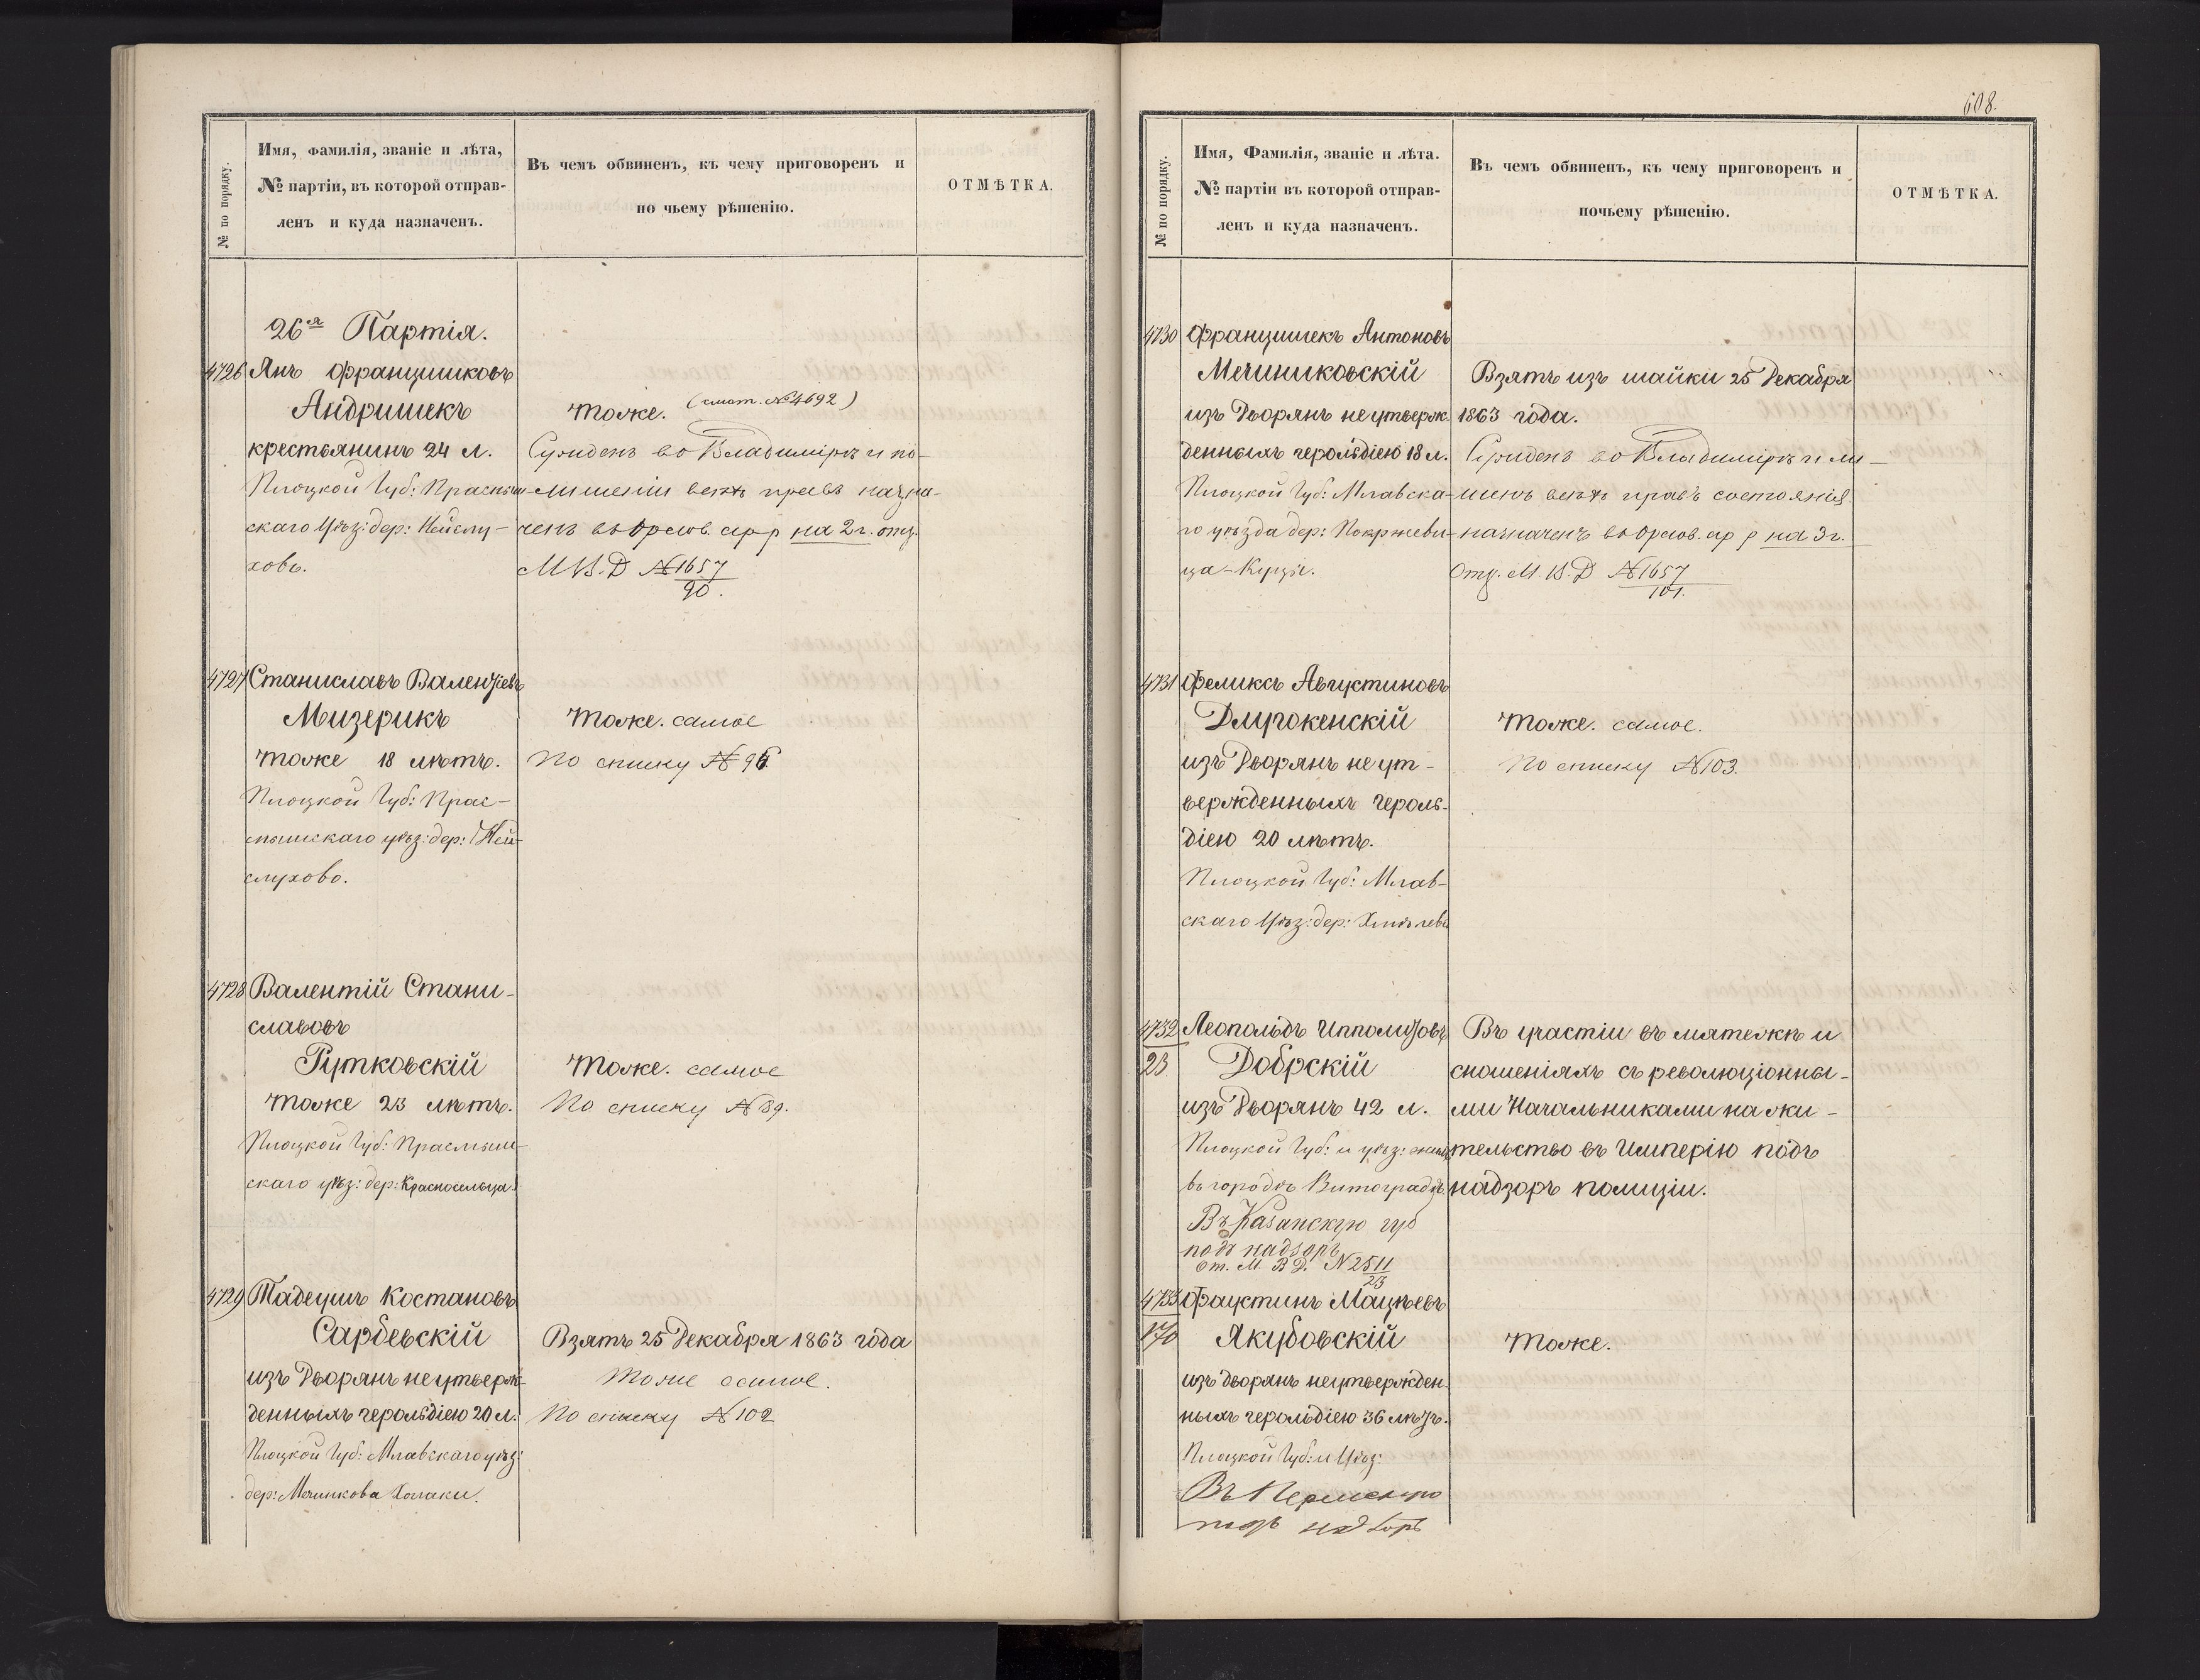 № по порядку.
Имя, фамилія, званіе и лѣта,
№ партіи, въ которой отправ-
ленъ и куда назначенъ.
Въ чемъ обвиненъ, къ чему приговоренъ и
по чьему рѣшенію.
ОТМѢТКА.
26я Партія.
4726
Янъ Францишковъ
Андришекъ
крестьянинъ 24 л.
Плоцкой Губ: Прасныш-
скаго Уѣз: дер: Нейслу-
хово.
тоже. (смот. № 4692)
Сужденъ во Владимірѣ и по
лишеніи всѣхъ правъ назна-
ченъ въ Орлов. ар р на 2 г. отз.
М В. Д № 1657
90.
4727
Станиславъ Валентіевъ
Мизерикъ
тоже 18 лѣтъ.
Плоцкой Губ: Прас-
нышскаго уѣз: дер: Ней-
слухово.
тоже. самое
По списку № 96
4728
Валентій Стани-
славовъ
Рутковскій
тоже 23 лѣтъ.
Плоцкой Губ: Прасныш-
скаго уѣз: дер: Красносельца.
тоже. самое
По списку № 89.
4729
Тадеушъ Костановъ
Сарбевскій
изъ Дворянъ неутверж-
денныхъ герольдіею 20 л.
Плоцкой Губ: Млавскаго уѣз:
дер: Мечинкова Холаки.
Взятъ 25 Декабря 1863 года
Тоже самое.
По списку № 102
608.
№ по порядку.
Имя, Фамилія, званіе и лѣта.
№ партіи въ которой отправ-
ленъ и куда назначенъ.
Въ чемъ обвиненъ, къ чему приговоренъ и
почьему рѣшенію.
ОТМѢТКА.
4730
Францишекъ Антоновъ
Мечиниковскій
изъ Дворянъ неутверж-
денныхъ герольдіею 18 л.
Плоцкой Губ: Млавска-
го уѣзда дер: Покржеви-
ца-
Взятъ изъ шайки 25 Декабря
1863 года.
Сужденъ во Владимірѣ и ли-
шенъ всѣхъ правъ состоянія
назначенъ въ Орлов. ар р на 3 г.
Отз. М. В. Д № 1657
101.
4731
Феликсъ Августиновъ
Длугокенскій
изъ Дворянъ неут-
вержденныхъ героль-
діею 20 лѣтъ.
Плоцкой Губ: Млав-
скаго Уѣз: дер: Хмѣлево
тоже. самое.
По списку № 103.
4732
23
Леопольдъ Ипполитовъ
Добрскій
изъ Дворянъ 42 л.
Плоцкой Губ: и уѣз: жит.
въ городѣ Виноградѣ.
Въ Казанскую губ
подъ надзоръ
От. М. В. Д. № 2511
23
Въ участіи въ мятежѣ и
сношеніяхъ съ революціонны-
ми Начальниками на жи-
тельство въ Имперію подъ
надзоръ полиціи.
4733
170
Фаустинъ Мацѣевъ
Якубовскій
изъ дворянъ неутвержден-
ныхъ герольдіею 36 лѣтъ.
Плоцкой Губ: и Уѣз:
Въ Пермскую
подъ надзоръ
тоже.